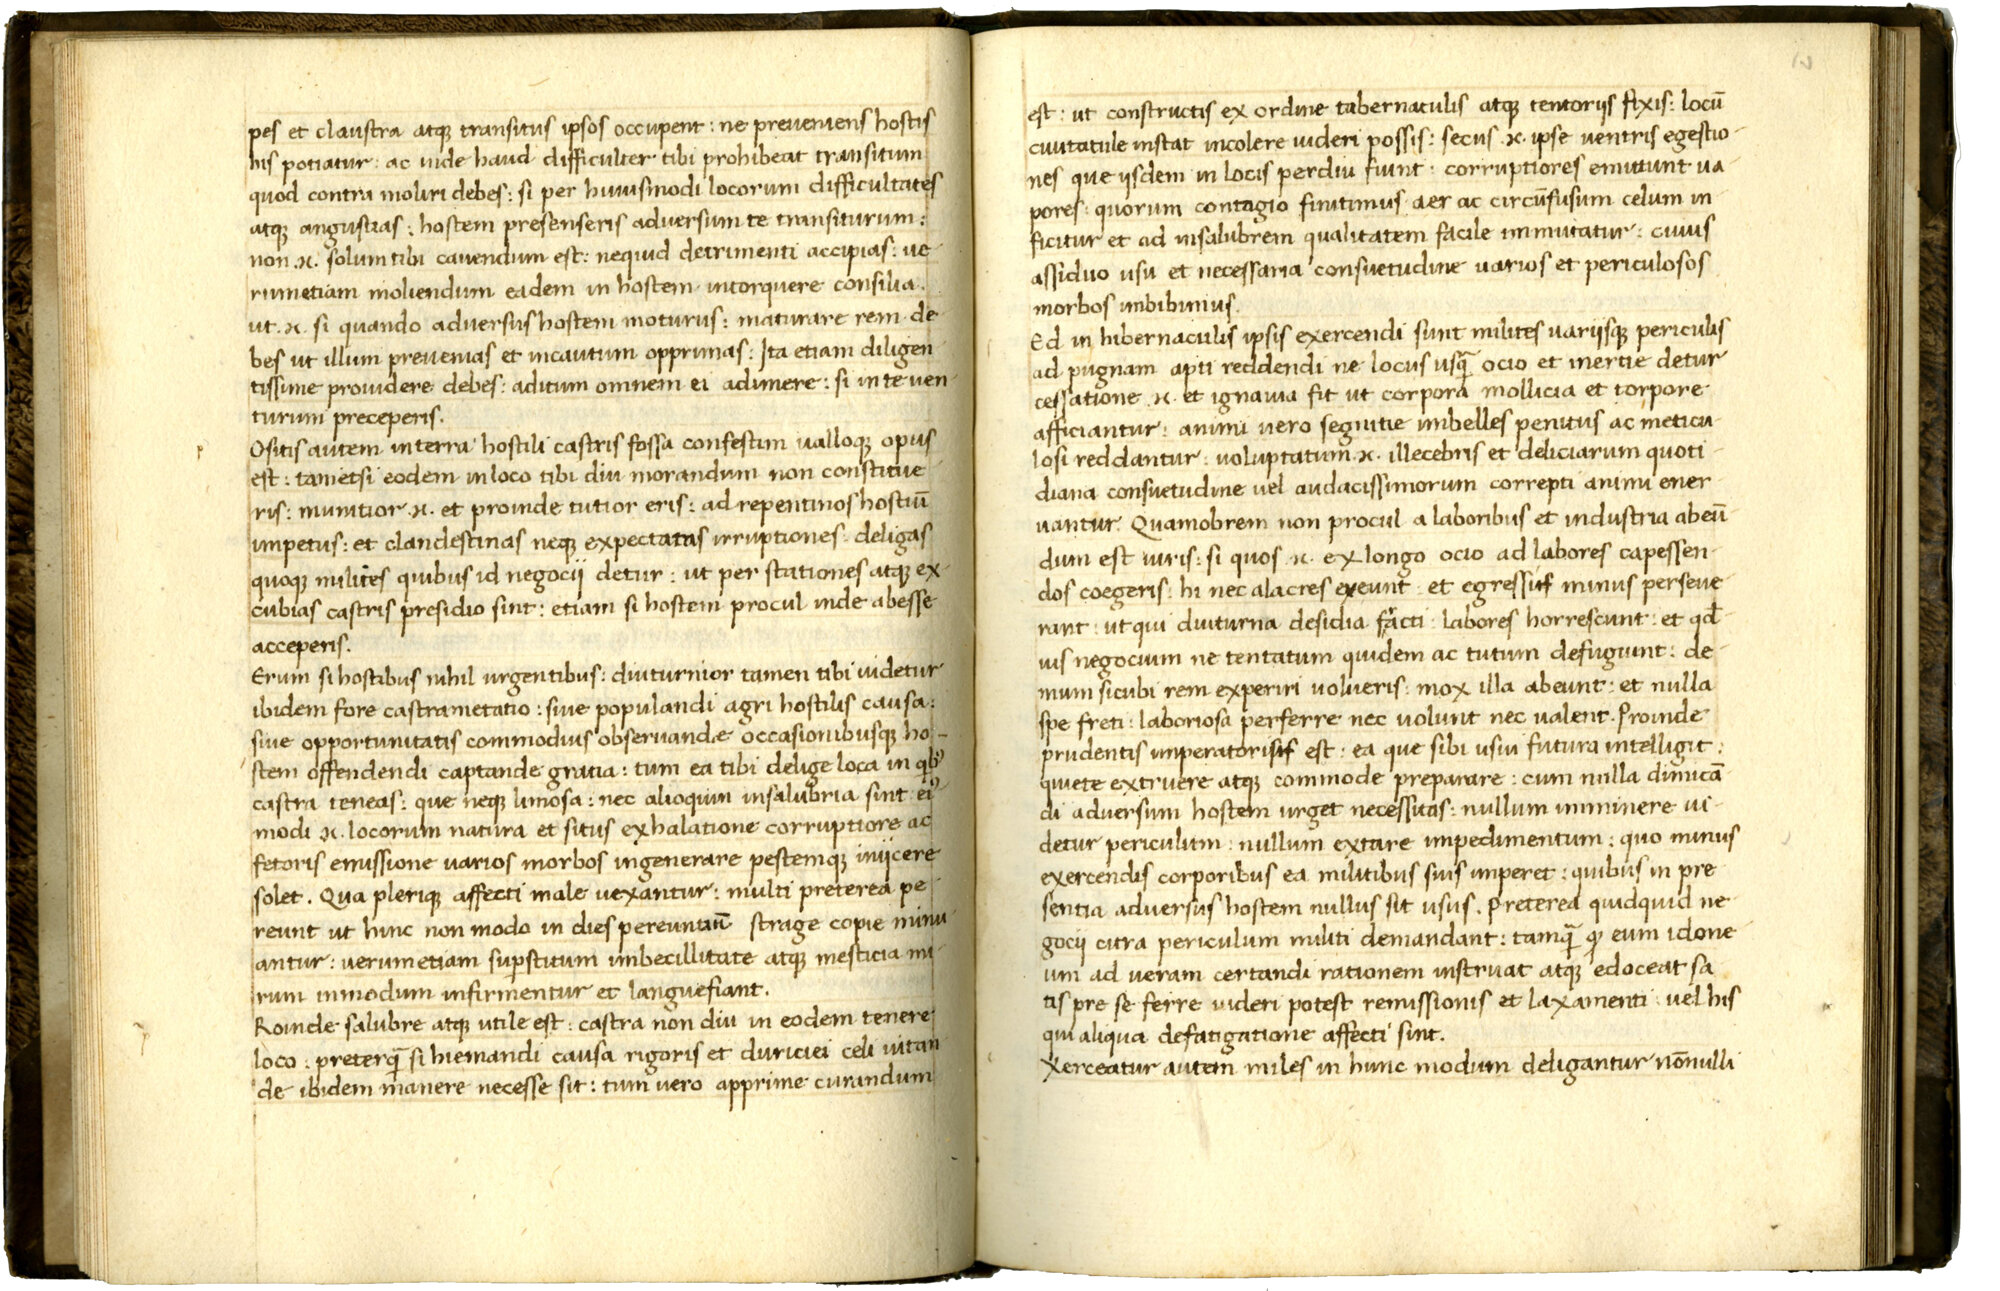 pes et claustra atq; transitus ipsos occupent : ne preueniens hostis
his potiatur : ac inde haud difficulter tibi prohibeat transitum
quod contra moliri debes : si per huiusmodi locorum difficultates
atq; angustias : hostem presenseris aduersum te transiturum :
non .n. solum tibi cauendum est : nequid detrimenti accipias : ue
rumetiam moliendum eadem in hostem intorquere consilia .
ut .n. si quando aduersus hostem moturus : maturare rem de
bes ut illum preuenias et incautum opprimas : Ita etiam diligen
tissime prouidere debes : aditum omnem ei adimere : si in te uen
turum preceperis .
p
Ositis autem in terra hostili castris fossa confestim ualloq; opus
est : tametsi eodem in loco tibi diu morandum non constitue
ris : munitior .n. et proinde tutior eris : ad repentinos hostiū
impetus : et clandestinas neq; expectatas irruptiones : deligas
quoq; milites quibus id negocij detur : ut per stationes atq; ex-
cubias castris presidio sint : etiam si hostem procul inde abesse
acceperis .
Erum si hostibus nihil urgentibus : diuturnior tamen tibi uidetur
ibidem fore castrametatio : siue populandi agri hostilis causa :
siue opportunitatis commodius obseruandæ occasionibusq; ho-
stem offendendi captande gratia : tum ea tibi delige loca in qbꝰ
castra teneas : que neq; limosa : nec alioquin insalubria sint : eiꝰ-
modi .n. locorum natura et situs exhalatione corruptiore ac
fetoris emissione uarios morbos ingenerare pestemq; iniicere
solet . Qua pleriq; affecti male uexantur : multi preterea pe
reunt ut hinc non modo in dies pereuntiū strage copie minu
antur : uerumetiam supstitum imbecillitate atq; mesticia mi-
rum inmodum infirmentur et languefiant .
p
Roinde salubre atq; utile est : castra non diu in eodem tenere
loco : preterq̄ si hiemandi causa rigoris et duriciei celi uitan
de ibidem manere necesse sit : tum uero apprime curandum
est : ut constructis ex ordine tabernaculis atq; tentorijs fixis : locū
ciuitatule instat incolere uideri possis : secus .n. ipse uentris egestio-
nes que ijsdem in locis perdiu fiunt : corruptiores emittunt ua
pores : quorum contagio finitimus aer ac circūfusum celum in-
ficitur et ad insalubrem qualitatem facile immutatur : cuius
assiduo usu et necessaria consuetudine uarios et periculosos
morbos imbibimus .
Ed in hibernaculis ipsis exercendi sunt milites uarijsq; periculis
ad pugnam apti reddendi ne locus usq̄ ocio et inertie detur
cessatione .n. et ignauia fit ut corpora mollicia et torpore
afficiantur : animi uero segnitie imbelles penitus ac meticu
losi reddantur : uoluptatum .n. illecebris et deliciarum quoti-
diana consuetudine uel audacissimorum correpti animi ener-
uantur . Quamobrem non procul a laboribus et industria abeū-
dum est uiris : si quos .n. ex longo ocio ad labores capessen-
dos coegeris : hi nec alacres exeunt : et egressi minus perseue-
rant : ut qui diuturna desidia fracti : labores horrescunt : et qd-
uis negocium ne tentatum quidem ac tutum defugiunt : de-
mum sicubi rem experiri uolueris : mox illa abeunt : et nulla
spe freti : laboriosa perferre nec uolunt nec ualent . Proinde
prudentis imperatoris est : ea que sibi usui futura intelligit :
quiete extruere atq; commode preparare : cum nulla dimicā-
di aduersum hostem urget necessitas : nullum imminere ui-
detur periculum : nullum extare impedimentum : quo minus
exercendis corporibus ea militibus suis imperet : quibus in pre
sentia aduersus hostem nullus sit usus . Preterea quidquid ne-
gocij citra periculum militi demandant : tamq̄ quod eum idone
um ad ueram certandi rationem instruat atq; edoceat sa
tis pre se ferre uideri potest remissionis et laxamenti : uel his
qui aliqua defatigatione affecti sint .
Xerceatur autem miles in hunc modum deligantur nōnulli